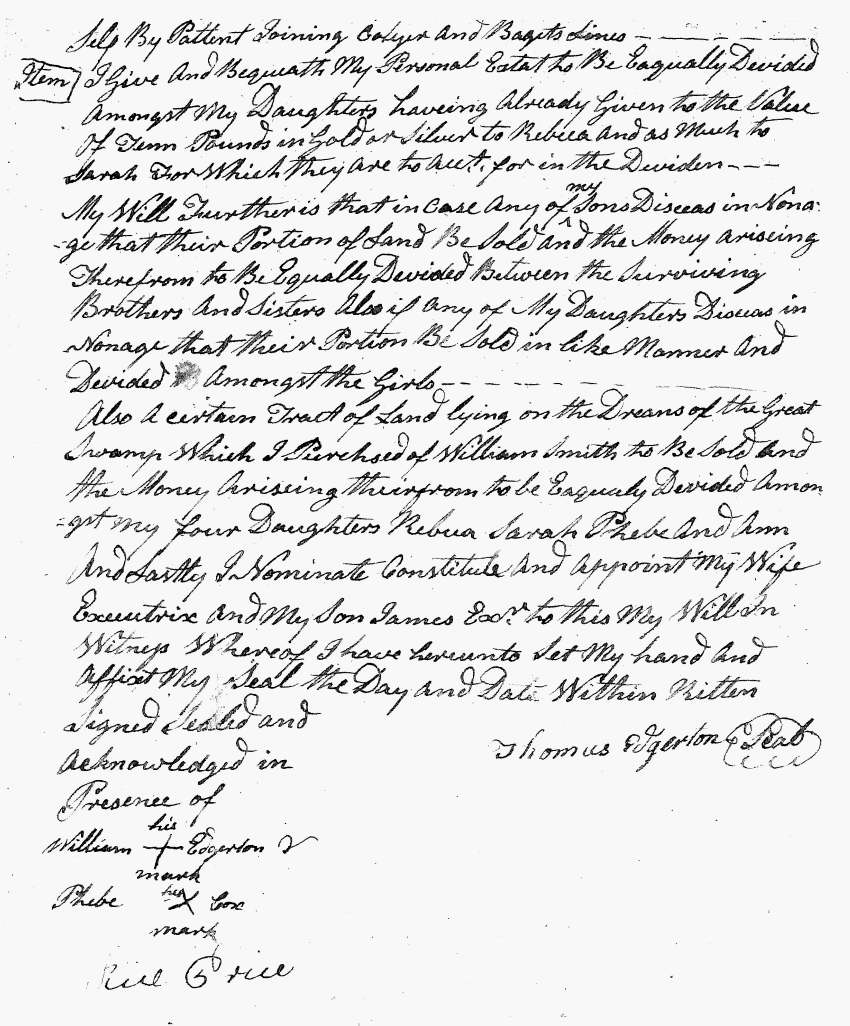 Self By Pattent Joining Colyer And Bagets Lines
Item I Give And Bequeath My Personal Estat to Be Eaqually Devided
Amongst My Daughters haveing Already Given to the Value
Of Tenn Pounds in Gold or Silver to Rebeca And as Much to
Sarah For Which they Are to Acct. for in the Deviden
My Will Further is that in Case Any of my Sons Diseeas in Nona-
-ge that their Portion of Land Be Sold And the Money Ariseing
Therefrom to Be Equally Devided Between the Surviving
Brothers And Sisters Also if Any of My Daughters Diseeas in
Nonage that their Portion Be Sold in like Manner And
Devided Amongst the Girls
Also A certain Tract of Land lying on the Dreans of the Great
Swamp Which I Perchsed of William Smith to Be Sold And
the Money Ariseing theirfrom to be Eaqualy Devided Amon
-gst My four Daughters Rebeca Sarah Phebe And Ann
And Lastly I Nominate Constitute And Appoint My Wife
Executrix And My Son James Exr. to this My Will In
Witness Whereof I have hereunto Set My hand And
Affixt My Seal the Day and Date Within Ritten
Signed Sealed and
Acknowledged in
Presence of
Thomas Edgerton Seal
his
William + Edgerton
mark
Phebe her X Cox
mark
Rice Price